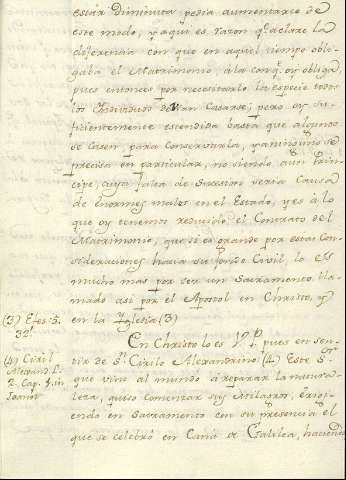 estar diminuta pedia aumentarce de
este modo, y aqui es razon q.e aclare la
diferencia con que en aquel tiempo obli-
gaba el Matrimonio, a la con q.e oy obliga,
pues entonces por necesitarlo la especie todos
los Individuos devian Casarse; pero oy su-
ficientemente estendida basta que algunos
se Casen para Conservarla, y a ninguno se
precisa en particular, no siendo aun Prin-
cipe, cuya falta de Sucesion seria Causa
de enormes males en el Estado, y es à lo
que oy tenemos reducido el Contrato del
Matrimonio, que si es grande por estas Con-
sideraciones hacia su fondo Civil, lo es
mucho mas por ser un Sacramento lla-
mado asi por el Apostol en Christo, y
en la Yglesia (3)
(3) Efes. 5.
32.
En Christo lo es V.P. pues en sen-
tir de S.n Cirilo Alexandrino (4) Este S.or
que vino al mundo à reparar la natura-
leza, quiso comenzar sus Milagros, erigi-
endo en Sacramento con su presencia el
que se celebró en Caná de Galilea, haciendo
(4) Ciril
Alexand. L.
2. Cap. in
Joann